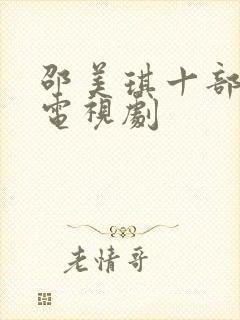 邵美琪十部
電視劇
老情哥